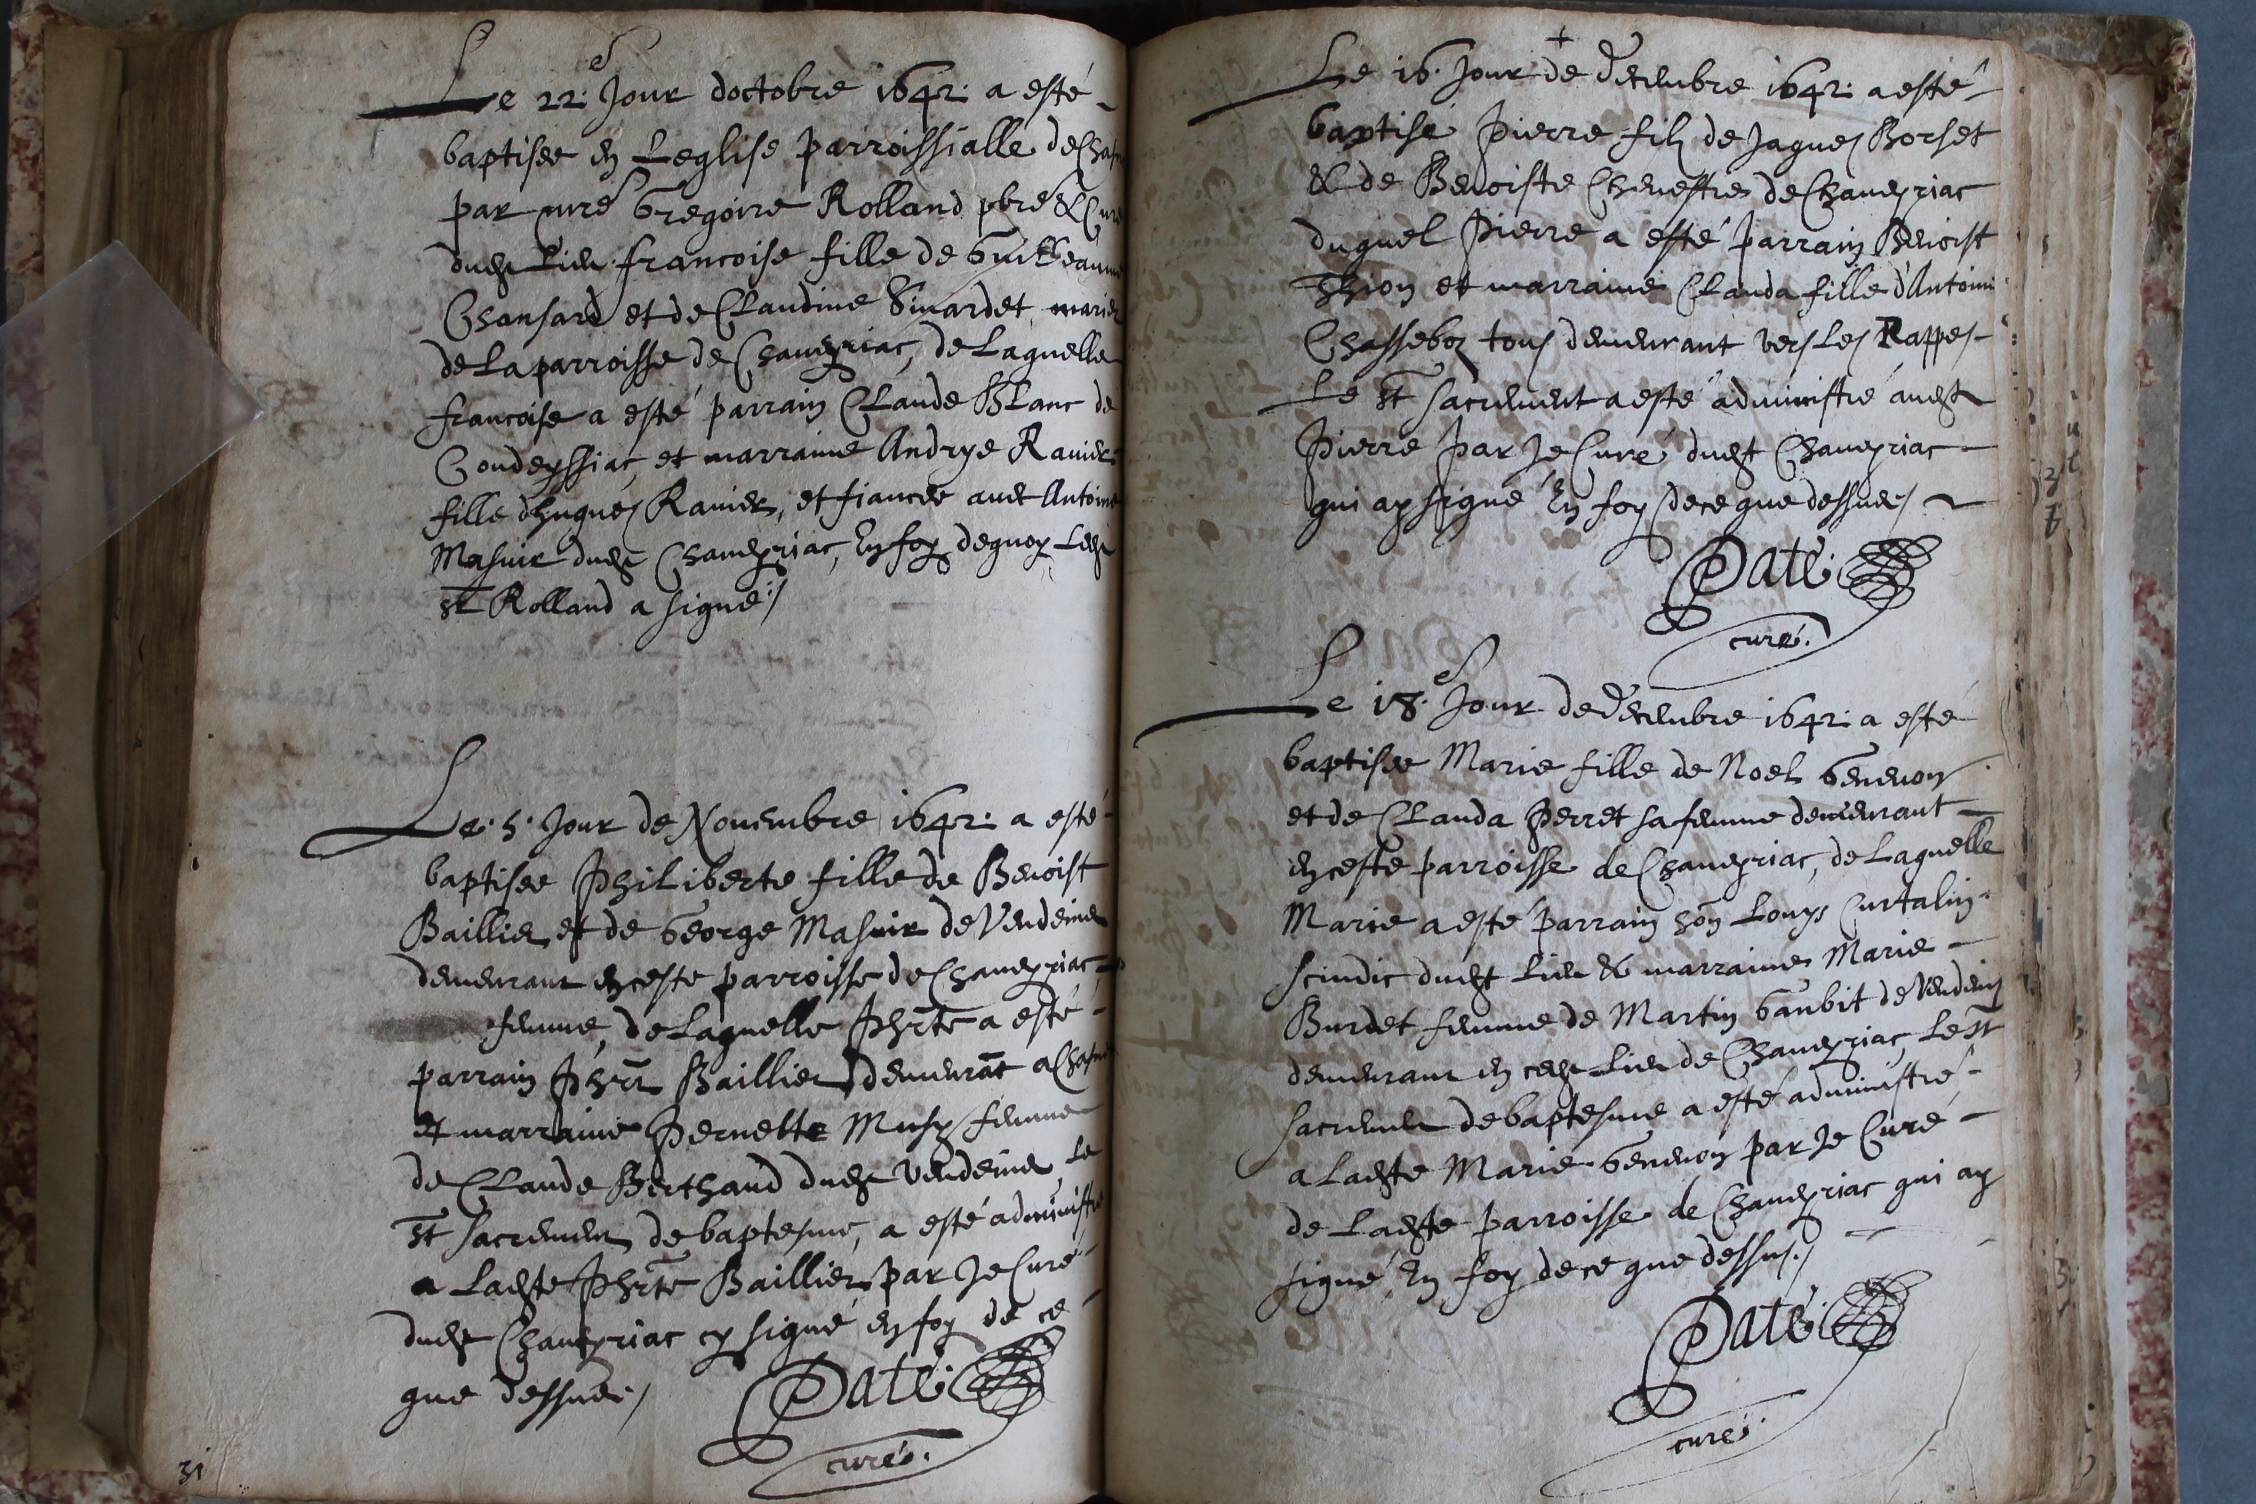 Le 22. Jour doctobre 1642. a esté
baptisee en Leglise parroissialle de
par mre Gregoire Rolland pbre & Curé
dudt Lieu francoise fille de Guilleaume
Chansard et de Claudine Sinardet mariez
de La parroisse de Chaveyriac, de Laquelle
francoise a esté parrain Claude Blanc de
Condeyssiac, et marraine Andrye Ravier
fille dhugues Ravier, et fiancee avec Antoine
Masuir dudt Chaveyriac, En foy dequoy Ledt
Sr Rolland a signé /
Le 5. Jour de Novembre 1642. a esté
baptisee Philiberte fille de Benoist
Baillier et de George Masuir de Vendeins
demeurant en ceste parroisse de Chaveyriac
femme, de Laquelle Phrte a esté
parrain Phrt Baillier demeurat a
et marraine Pernette Musy femme
de Claude Berthaud dudt Vendeins Le
St Sacrement de baptesme, a esté administré
a Ladte Phrte Baillier par Je Curé
dudt Chaveyriac cy signé en foy de ce
que dessus /
Daté
curé.
31
Le 16. Jour de Decembre 1642. a esté
baptisé Pierre filz de Jaques Borset
& de Benoiste Chenestres de Chaveyriac
duquel Pierre a esté parrain Benoist
et marraine Clauda fille d'Antoine
Chasseboz tous demeurant vers Les Rappes
Le St Sacrement a esté administré audt
Pierre par Je Curé dudt Chaveyriac
qui ay signé En foy de ce que dessus /
Daté
curé.
Le 18. Jour de Decembre 1642. a esté
baptisee Marie fille de Noel Genevoy
et de Clauda Perret sa femme demeurant
en ceste parroisse de Chaveyriac, de Laquelle
Marie a esté parrain hon Louys Curtalin
scindic dudt Lieu & marraine Marie
Burdet femme de Martin Ganbit de Vendeins
demeurant en cedt Lieu de Chaveyriac, Le St
Sacrement de baptesme a esté administré
a Ladte Marie Genevoy par Je Curé
de Ladte parroisse de Chaveyriac qui ay
signé, En foy de ce que dessus /
Daté
curé.